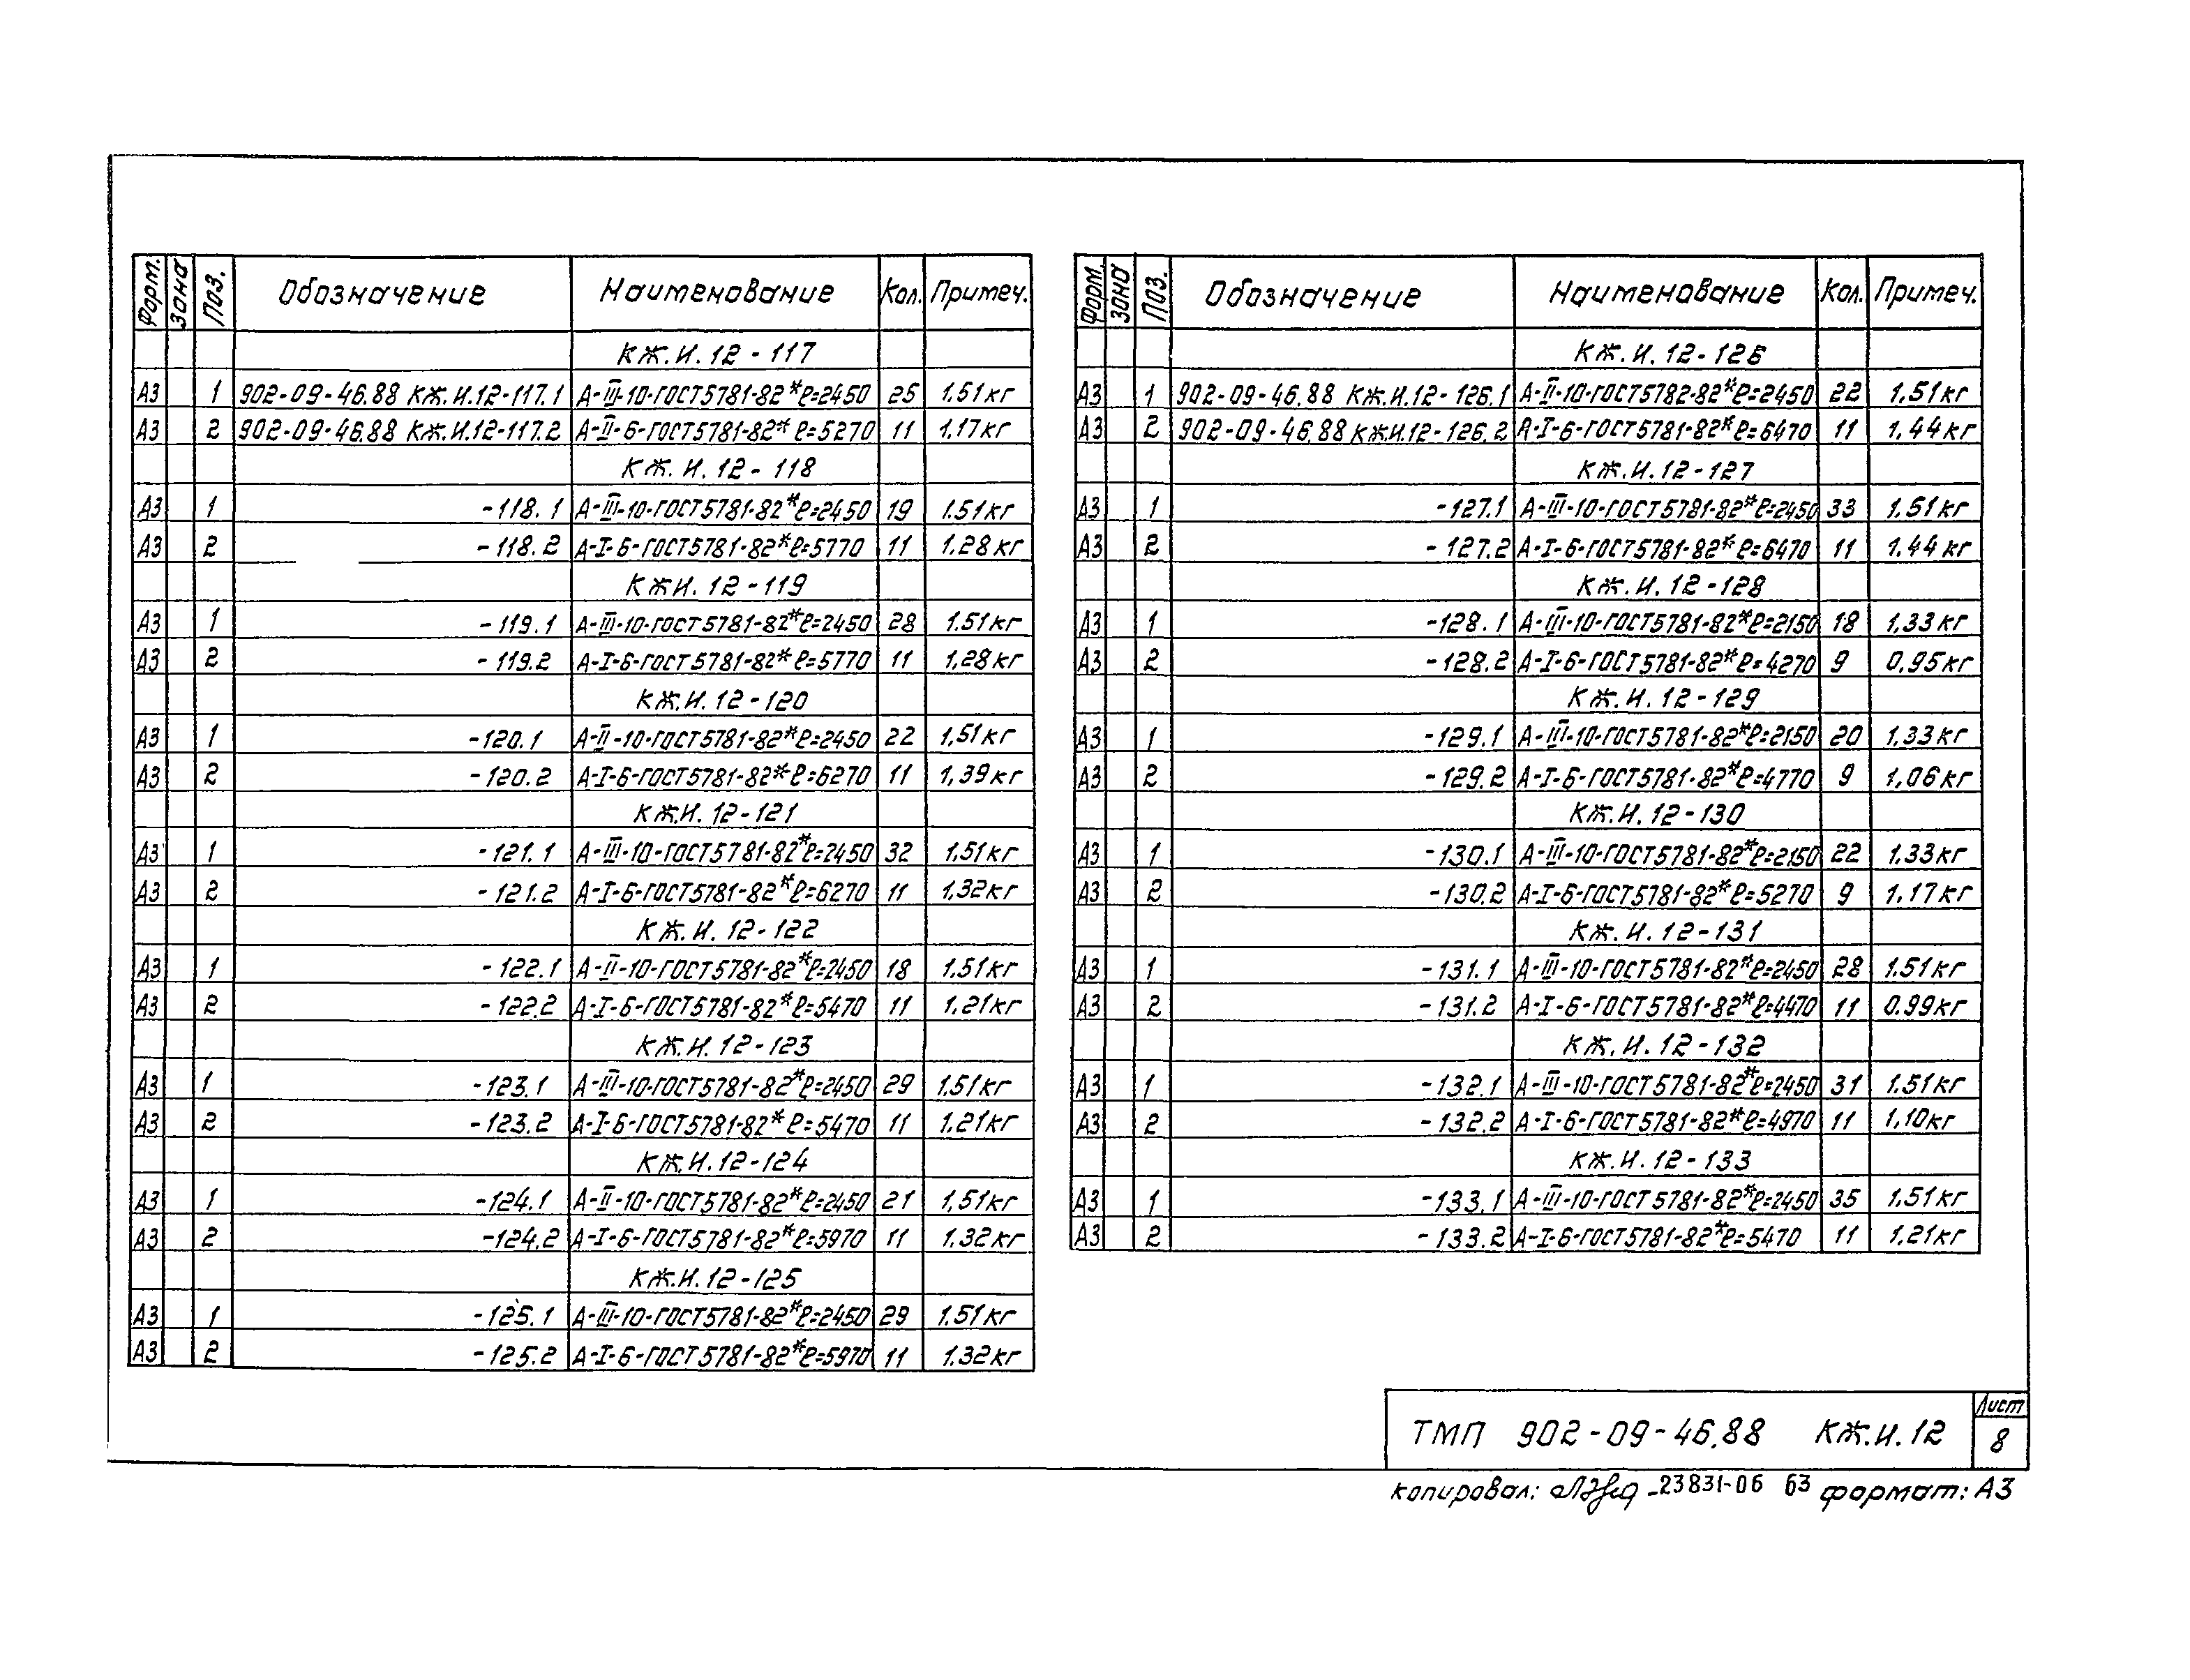 Форм. Зона Поз. Обозначение Наименование Кол. Примеч.
КЖ.И.12-117
А3 1 902-09-46.88 КЖ.И.12-117.1 А-III-10-ГОСТ5781-82* ℓ=2450 25 1.51кг
А3 2 902-09-46.88 КЖ.И.12-117.2 А-II-6-ГОСТ5781-82* ℓ=5270 11 1.17кг
КЖ.И.12-118
А3 1 -118.1 А-III-10-ГОСТ5781-82* ℓ=2450 19 1.51кг
А3 2 -118.2 А-I-6-ГОСТ5781-82* ℓ=5770 11 1.28кг
КЖИ.12-119
А3 1 -119.1 А-III-10-ГОСТ5781-82* ℓ=2450 28 1.51кг
А3 2 -119.2 А-I-6-ГОСТ5781-82* ℓ=5770 11 1,28кг
КЖ.И.12-120
А3 1 -120.1 А-II-10-ГОСТ5781-82* ℓ=2450 22 1,51кг
А3 2 -120.2 А-I-6-ГОСТ5781-82* ℓ=6270 11 1,39кг
КЖ.И.12-121
А3 1 -121.1 А-III-10-ГОСТ5781-82* ℓ=2450 32 1.51кг
А3 2 -121.2 А-I-6-ГОСТ5781-82* ℓ=6270 11 1,32кг
КЖ.И.12-122
А3 1 -122.1 А-II-10-ГОСТ5781-82* ℓ=2450 18 1.51кг
А3 2 -122.2 А-I-6-ГОСТ5781-82* ℓ=5470 11 1.21кг
КЖ.И.12-123
А3 1 -123.1 А-III-10-ГОСТ5781-82* ℓ=2450 29 1.51кг
А3 2 -123.2 А-I-6-ГОСТ5781-82* ℓ=5470 11 1.21кг
КЖ.И.12-124
А3 1 -124.1 А-II-10-ГОСТ5781-82* ℓ=2450 21 1,51кг
А3 2 -124.2 А-I-6-ГОСТ5781-82* ℓ=5970 11 1.32кг
КЖ.И.12-125
А3 1 -125.1 А-III-10-ГОСТ5781-82* ℓ=2450 29 1.51кг
А3 2 -125.2 А-I-6-ГОСТ5781-82* ℓ=5970 11 1.32кг
Форм. Зона Поз. Обозначение Наименование Кол. Примеч.
КЖ.И.12-126
А3 1 902-09-46.88 КЖ.И.12-126.1 А-II-10-ГОСТ5782-82* ℓ=2450 22 1,51кг
А3 2 902-09-46.88 КЖ.И.12-126.2 А-I-6-ГОСТ5781-82* ℓ=6470 11 1.44кг
КЖ.И.12-127
А3 1 -127.1 А-III-10-ГОСТ5781-82* ℓ=2450 33 1.51кг
А3 2 -127.2 А-I-6-ГОСТ5781-82* ℓ=6470 11 1.44кг
КЖ.И.12-128
А3 1 -128.1 А-III-10-ГОСТ5781-82* ℓ=2150 18 1,33кг
А3 2 -128.2 А-I-6-ГОСТ5781-82* ℓ=4270 9 0.95кг
КЖ.И.12-129
А3 1 -129.1 А-III-10-ГОСТ5781-82* ℓ=2150 20 1,33кг
А3 2 -129.2 А-I-6-ГОСТ5781-82* ℓ=4770 9 1,06кг
КЖ.И.12-130
А3 1 -130.1 А-III-10-ГОСТ5781-82* ℓ=2150 22 1.33кг
А3 2 -130.2 А-I-6-ГОСТ5781-82* ℓ=5270 9 1.17кг
КЖ.И.12-131
А3 1 -131.1 А-III-10-ГОСТ5781-82* ℓ=2450 28 1.51кг
А3 2 -131.2 А-I-6-ГОСТ5781-82* ℓ=4470 11 0.99кг
КЖ.И.12-132
А3 1 -132.1 А-III-10-ГОСТ5781-82* ℓ=2450 31 1.51кг
А3 2 -132.2 А-I-6-ГОСТ5781-82* ℓ=4970 11 1,10кг
КЖ.И.12-133
А3 1 -133.1 А-III-10-ГОСТ5781-82* ℓ=2450 35 1.51кг
А3 2 -133.2 А-I-6-ГОСТ5781-82* ℓ=5470 11 1.21кг
ТМП 902-09-46.88 КЖ.И.12
Лист
8
копировал: -23831-06 63 формат: А3